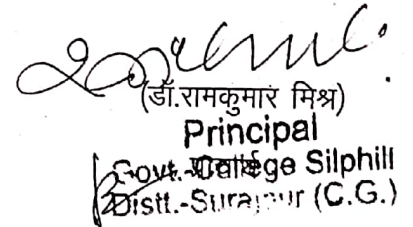 (डॉ.रामकुमार मिश्र)
Principal
Govt. College Silphill
Distt.-Surajpur (C.G.)